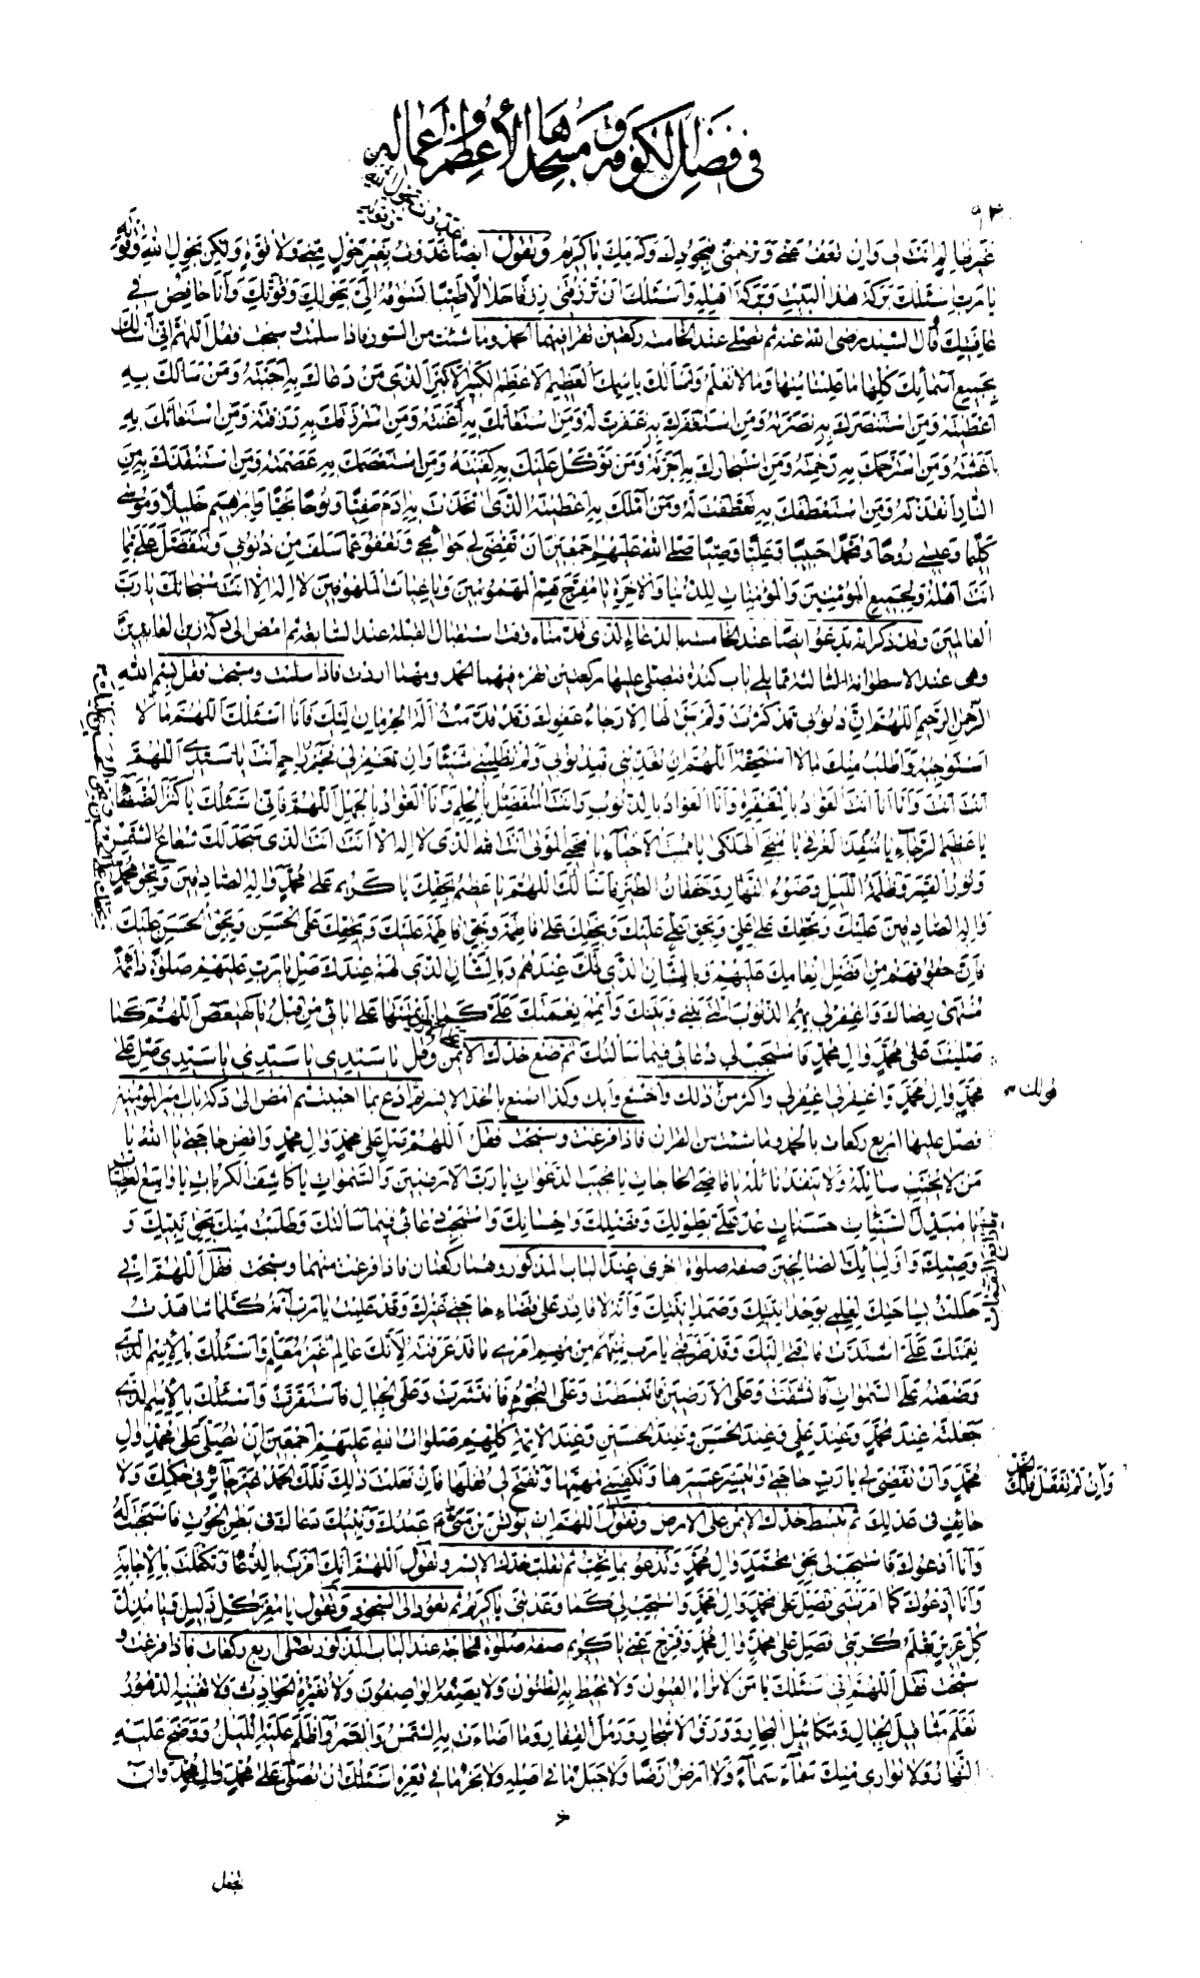 في فضل الكوفة و مسجدها الأعظم و أعماله
٩٣
غدوت بحول الله وقوته
غيرها إلا أنت لي وإن تعف عني وترحمني فبجودك وكرمك يا كريم وتقول أيضا غدوت بغير حول مني ولا قوة ولكن بحول الله وقوته
يا رب أسئلك بركة هذا البيت وبركة أهله وأسئلك أن ترزقني رزقا حلالا طيبا تسوقه إلي بحولك وقوتك وأنا خافض في
عافيتك وقال السيد رضي الله عنه ثم تصلي عند الخامسة ركعتين تقرأ فيهما الحمد وما شئت من السور فإذا سلمت وسبحت فقل اللهم إني أسألك
بجميع أسمائك كلها ما علمنا منها وما لا نعلم وأسألك باسمك العظيم الأعظم الكبير الأكبر الذي من دعاك به أجبته ومن سألك به
أعطيته ومن استنصرك به نصرته ومن استغفرك به غفرت له ومن استعانك به أعنته ومن استرزقك به رزقته ومن استغاثك به
أغثته ومن استرحمك به رحمته ومن استجارك به أجرته ومن توكل عليك به كفيته ومن استعصمك به عصمته ومن استنقذك به من
النار أنقذته ومن استعطفك به تعطفت له ومن أملك به أعطيته الذي اتخذت به آدم صفيا ونوحا نجيا وإبرهيم خليلا وموسى
كليما وعيسى روحا ومحمدا حبيبا وعليا وصيا صلى الله عليهم أجمعين أن تقضي لي حوائجي وتعفو عما سلف من ذنوبي وتتفضل علي بما
أنت أهله ولجميع المؤمنين والمؤمنات للدنيا والآخرة يا مفرج هم المهمومين ويا غياث الملهوفين لا إله إلا أنت سبحانك يا رب
العالمين وقد ذكر أنه تدعو أيضا عند الخامسة بالدعاء الذي قدمناه وقت استقبال القبلة عند السابعة ثم امض إلى دكة زين العابدين
وهي عند الأسطوانة الثالثة مما يلي باب كندة فتصلي عليها ركعتين تقرء فيهما الحمد ومهما أردت فإذا سلمت وسبحت فقل بسم الله
الرحمن الرحيم اللهم إن ذنوبي قد كثرت ولم يبق لها إلا رجاء عفوك وقد قدمت آلة الحرمان إليك فأنا أسئلك اللهم ما لا
أستوجبه وأطلب منك ما لا أستحقه اللهم إن تعذبني فبذنوبي ولم تظلمني شيئا وإن تغفر لي فخير راحم أنت يا سيدي اللهم
أنت أنت وأنا أنا أنت العواد بالمغفرة وأنا العواد بالذنوب وأنت المتفضل بالحلم وأنا العواد بالجهل اللهم فإني أسئلك يا كنز الضعفاء
يا عظيم الرجاء يا منقذ الغرقى يا منجي الهلكى يا مميت الأحياء يا محيي الموتى أنت الله الذي لا إله إلا أنت أنت الذي سجد لك شعاع الشمس
ونور القمر وظلمة الليل وضوء النهار وخفقان الطير فأسألك اللهم يا عظيم بحقك يا كريم على محمد وآله الصادقين وبحق محمد
وآله الصادقين عليك وبحقك على علي وبحق علي عليك وبحقك على فاطمة وبحق فاطمة عليك وبحقك على الحسن وبحق الحسن عليك
فإن حقوقهم من أفضل إنعامك عليهم وبالشأن الذي لك عندهم وبالشأن الذي لهم عندك صل يا رب عليهم صلوة دائمة
منتهى رضاك واغفر لي بهم الذنوب التي بيني وبينك وأتمم نعمتك علي كما أتممتها على آبائي من قبل يا كهيعص اللهم كما
صليت على محمد وآل محمد فاستجب لي دعائي فيما سألتك ثم ضع خدك الأيمن وقل يا سيدي يا سيدي يا سيدي صل على
محمد وآل محمد واغفر لي اغفر لي وأكثر من ذلك واخشع وابك وكذا اصنع بالخد الأيسر ثم ادع بما أحببت ثم امض إلى دكة باب أمير المؤمنين
قولك
فصل عليها أربع ركعات بالحمد وما شئت من القرآن فإذا فرغت وسبحت فقل اللهم صل على محمد وآل محمد واقض حاجتي يا الله يا
من لا يخيب سائله ولا ينفد نائله يا قاضي الحاجات يا مجيب الدعوات يا رب الأرضين والسموات يا كاشف الكربات يا واسع العطيات
يا مبدل السيئات حسنات عد علي بطولك وفضلك وإحسانك واستجب دعائي فيما سألتك وطلبت منك بحق نبيك و
وصيك وأوليائك الصالحين صفة صلوة أخرى عند الباب المذكور وهما ركعتان فإذا فرغت منهما وسبحت فقل اللهم إني
حللت بساحتك لعلمي بوحدانيتك وصمدانيتك وأنه لا قادر على قضاء حاجتي غيرك وقد علمت يا رب أنه كلما شاهدت
نعمتك علي اشتدت فاقتي إليك وقد طرقني يا رب من مهم أمري ما قد عرفته لأنك عالم غير معلم وأسئلك بالاسم الذي
وضعته على السموات فانشقت وعلى الأرضين فانبسطت وعلى النجوم فانتشرت وعلى الجبال فاستقرت وأسئلك بالاسم الذي
جعلته عند محمد وعند علي وعند الحسن وعند الحسين وعند الأئمة كلهم صلوات الله عليهم أجمعين أن تصلي على محمد وآل
محمد وأن تقضي لي يا رب حاجتي وتيسر عسيرها وتكفيني مهمها وتفتح لي قفلها فإن فعلت ذلك فلك الحمد غير جائر في حكمك ولا
وإن لم تفعل فلك الحمد
حائف في عدلك ثم تبسط خدك الأيمن على الأرض وتقول اللهم إن يونس بن متى عبدك ونبيك دعاك في بطن الحوت فاستجبت له
وأنا أدعوك فاستجب لي بحق محمد وآل محمد وتدعو بما تحب ثم تقلب خدك الأيسر وتقول اللهم إنك أمرت بالدعاء وتكفلت بالإجابة
وأنا أدعوك كما أمرتني فصل على محمد وآل محمد واستجب لي كما وعدتني يا كريم ثم تعود إلى السجود وتقول يا معز كل ذليل ويا مذل
كل عزيز تعلم كربتي فصل على محمد وآل محمد وفرج عني يا كريم صفة صلوة للحاجة عند الباب المذكور تصلي أربع ركعات فإذا فرغت و
سبحت فقل اللهم إني أسئلك يا من لا تراه العيون ولا تحيط به الظنون ولا يصفه الواصفون ولا تغيره الحوادث ولا تفنيه الدهور
تعلم مثاقيل الجبال ومكائيل البحار وورق الأشجار ورمل القفار وما أضاءت به الشمس والقمر وأظلم عليه الليل ووضح عليه
النهار ولا تواري منك سماء سماء ولا أرض أرضا ولا جبل ما في أصله ولا بحر ما في قعره أسئلك أن تصلي على محمد وآل محمد وأن
تجعل